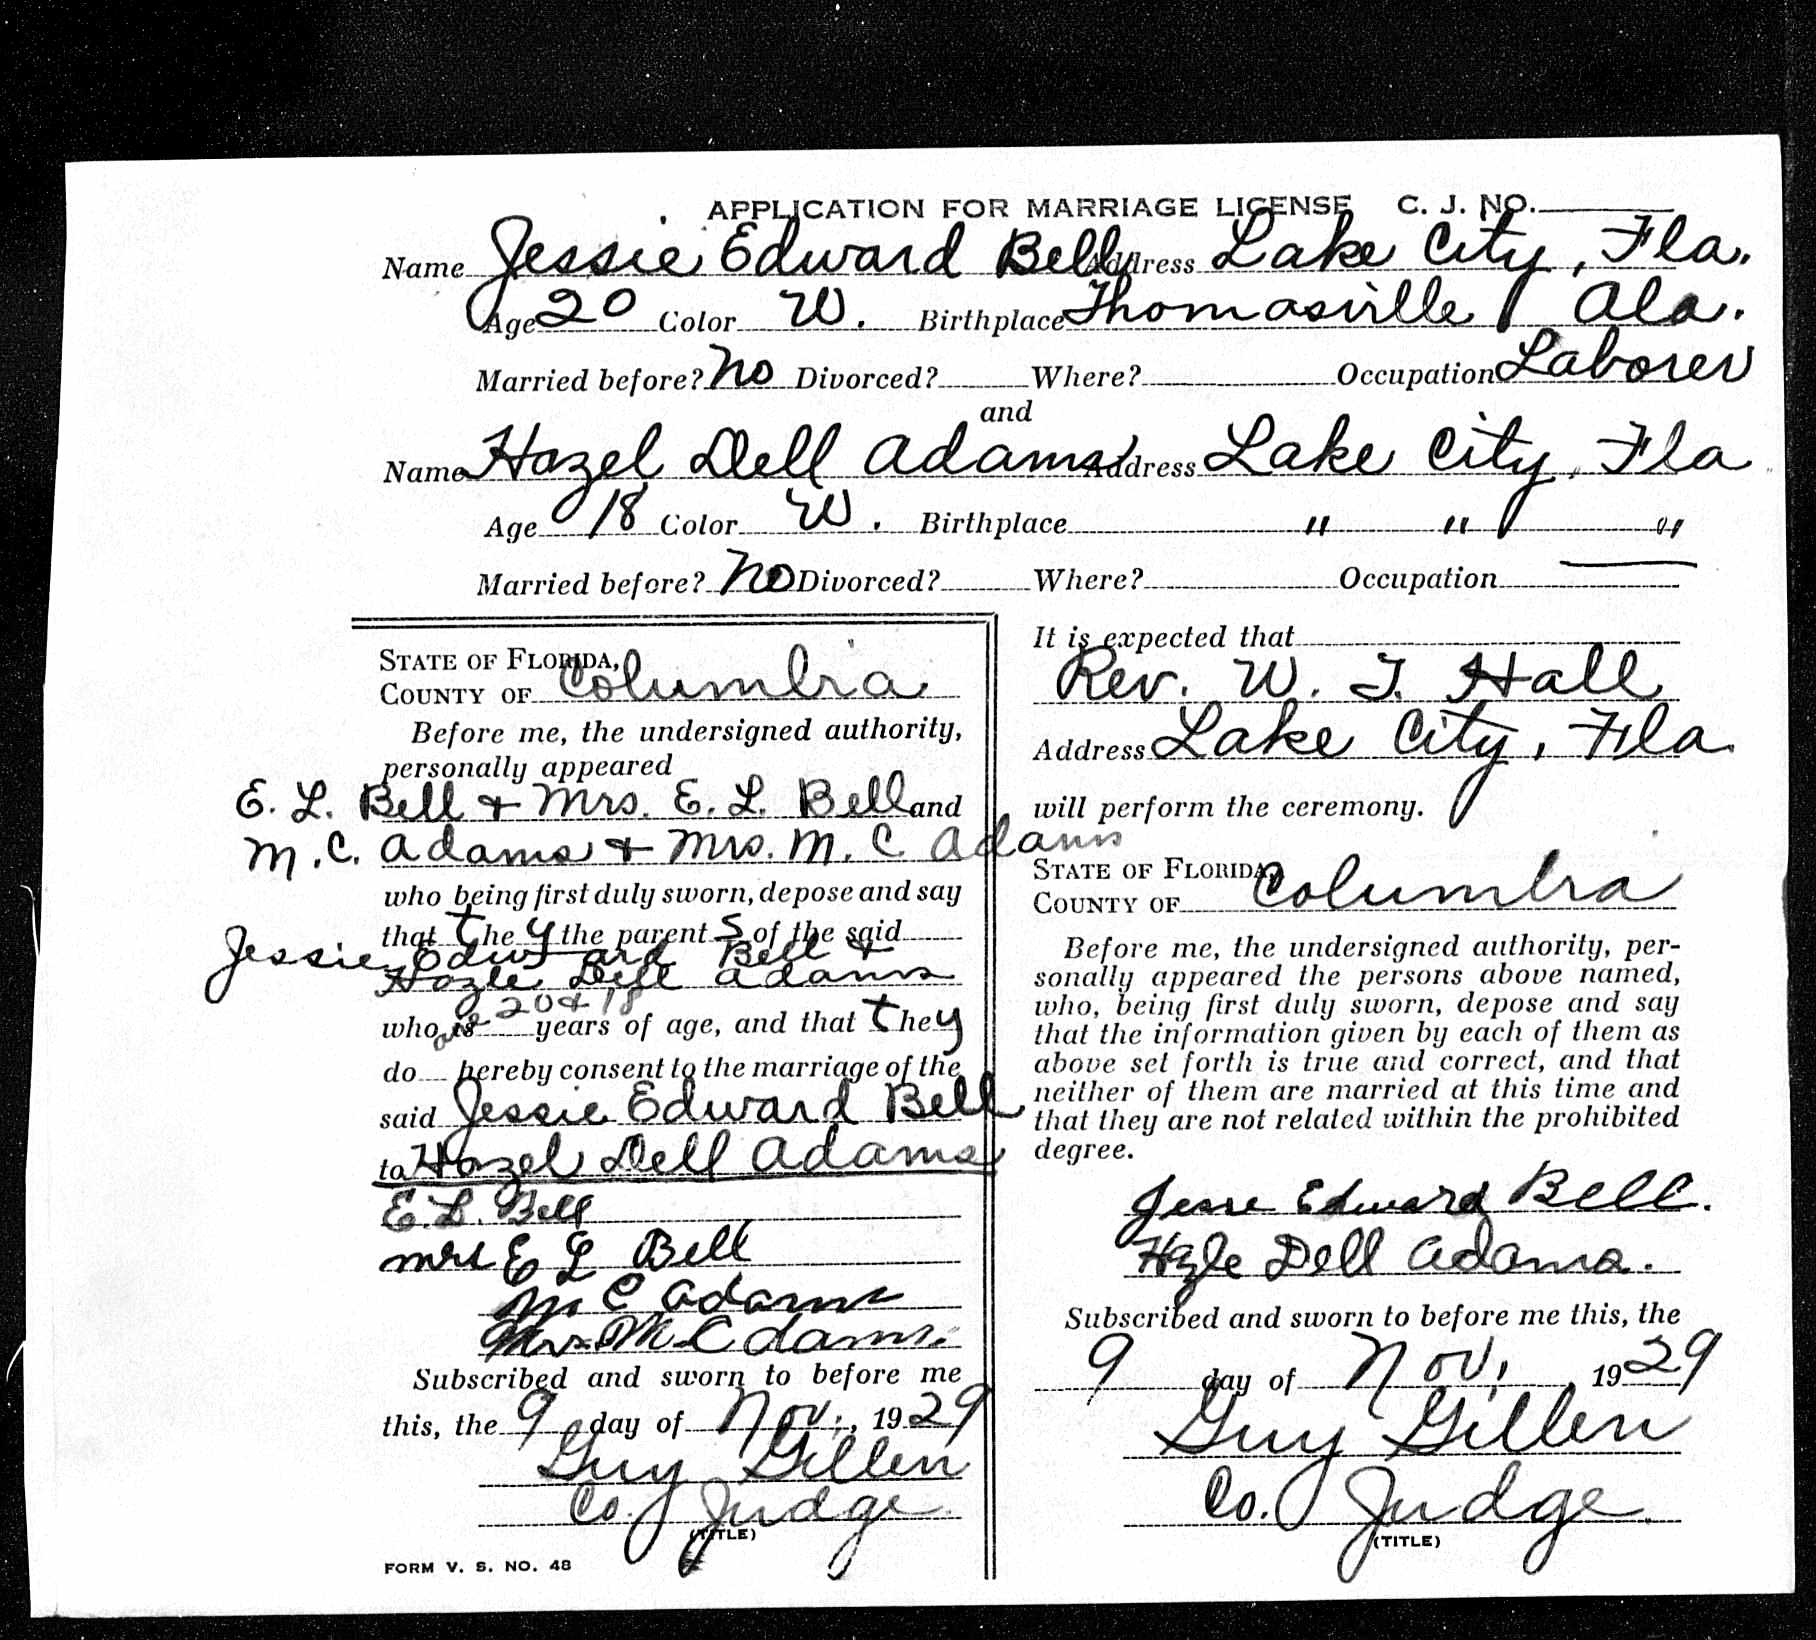 APPLICATION FOR MARRIAGE LICENSE C. J. NO.
Name Jessie Edward Bell Address Lake City, Fla.
Age 20 Color W. Birthplace Thomasville, Ala.
Married before? No Divorced? Where? Occupation Laborer
and
Name Hazel Dell Adams Address Lake City, Fla
Age 18 Color W. Birthplace " " "
Married before? No Divorced? Where? Occupation
STATE OF FLORIDA,
COUNTY OF Columbia
Before me, the undersigned authority,
personally appeared
E. L. Bell + Mrs. E. L. Bell and
M. C. Adams + Mrs. M. C. Adams
who being first duly sworn, depose and say
that they the parents of the said
Jessie Edward Bell +
Hazle Dell Adams
who is are 20 & 18 years of age, and that they
do hereby consent to the marriage of the
said Jessie Edward Bell
to Hazel Dell Adams
E. L. Bell
mrs E L Bell
M C Adams
Mrs M C Adams.
Subscribed and sworn to before me
this, the 9 day of Nov., 1929
Guy Gillen
Co. Judge
(TITLE)
FORM V. S. NO. 48
It is expected that
Rev. W. T. Hall
Address Lake City, Fla.
will perform the ceremony.
STATE OF FLORIDA,
COUNTY OF Columbia
Before me, the undersigned authority, per-
sonally appeared the persons above named,
who, being first duly sworn, depose and say
that the information given by each of them as
above set forth is true and correct, and that
neither of them are married at this time and
that they are not related within the prohibited
degree.
Jesse Edward Bell.
Hazle Dell Adams.
Subscribed and sworn to before me this, the
9 day of Nov., 1929
Guy Gillen
Co. Judge.
(TITLE)